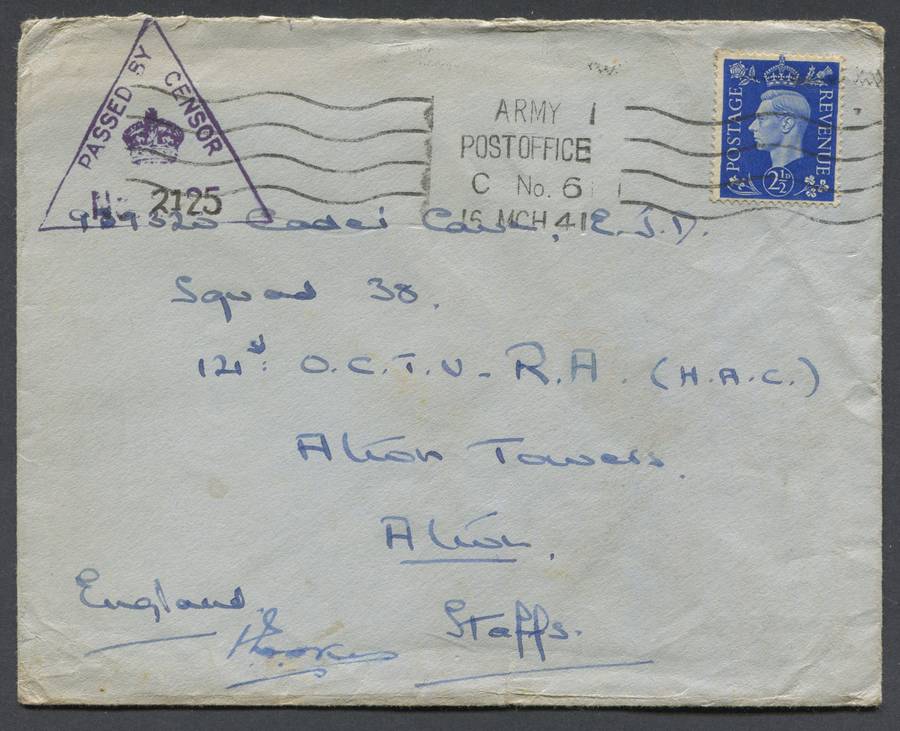 PASSED BY CENSOR
No 2125
ARMY
POST OFFICE
C No. 6
16 MCH 41
POSTAGE REVENUE
2½D
Cadet E.J.D.
Squad 38.
121st O.C.T.U - R.A. (H.A.C.)
Alton Towers.
Alton.
Staffs.
England.